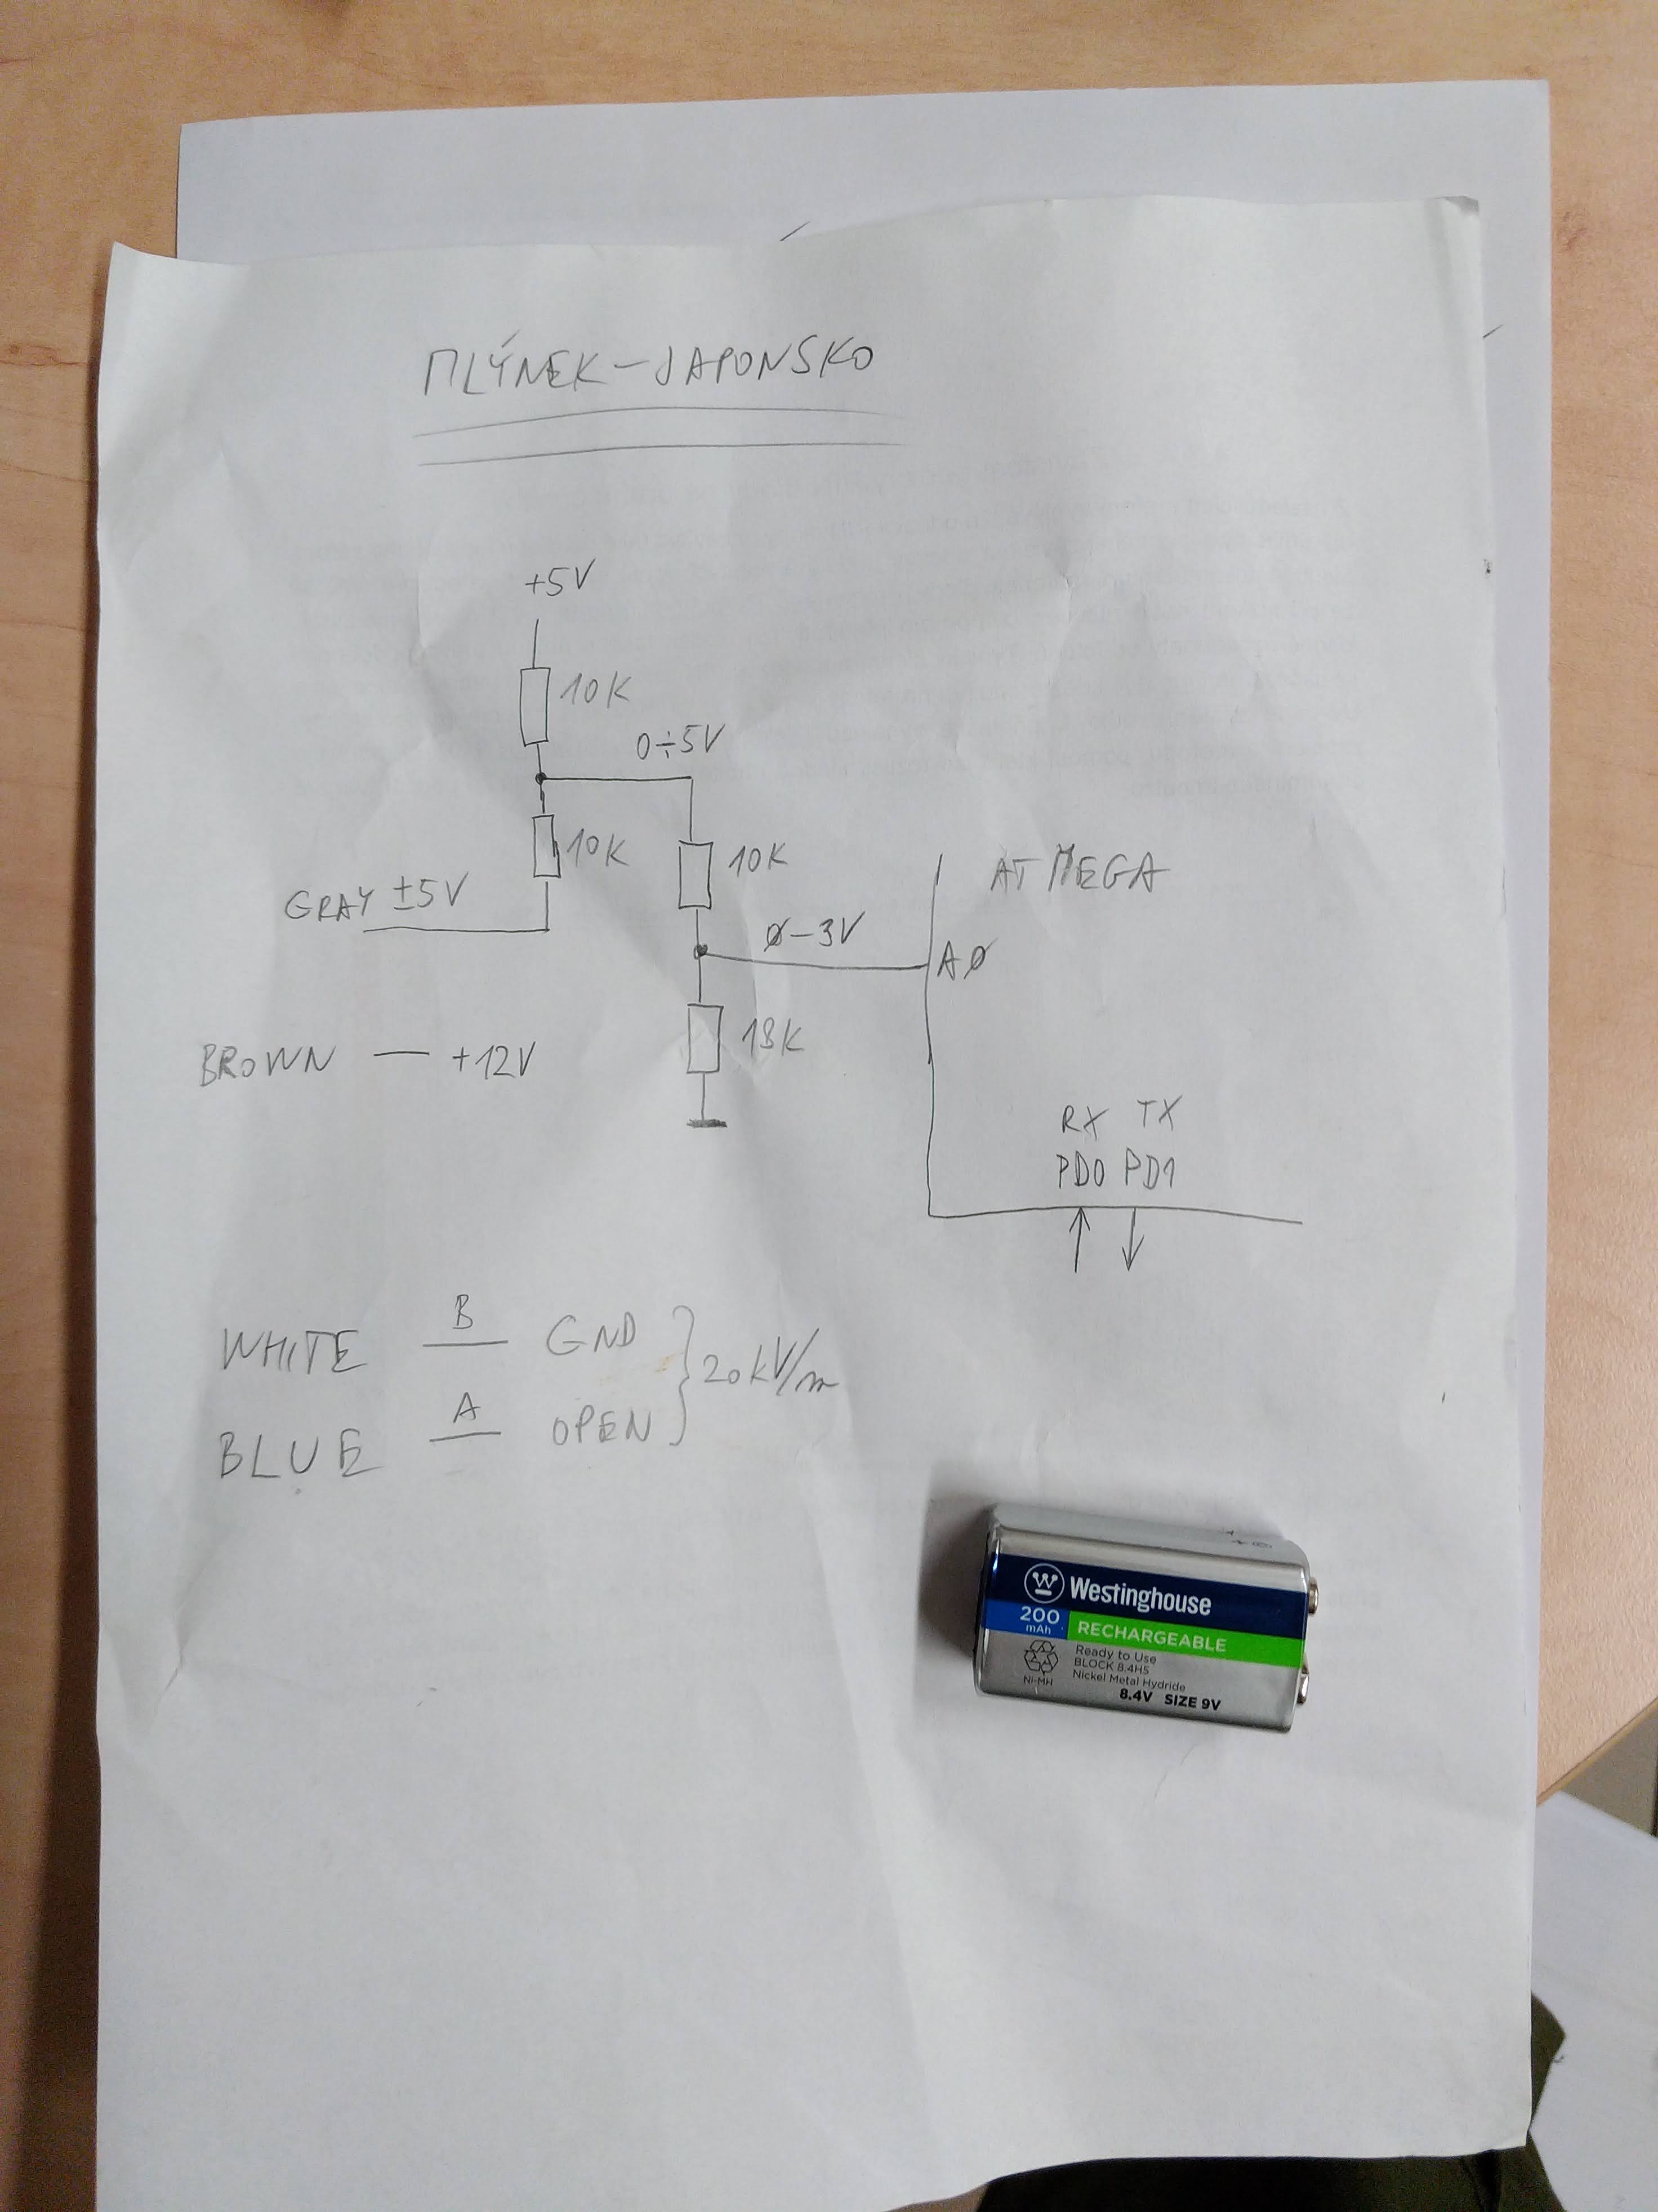 MLÝNEK-JAPONSKO
+5V
10K
0÷5V
10K
10K
GRAY ±5V
AT MEGA
Ø-3V
AØ
BROWN — +12V
18K
RX TX
PD0 PD1
WHITE B GND
20kV/m
BLUE A OPEN
Westinghouse
200
mAh
RECHARGEABLE
Ready to Use
BLOCK 8.4H5
Nickel Metal Hydride
NI-MH
8.4V SIZE 9V